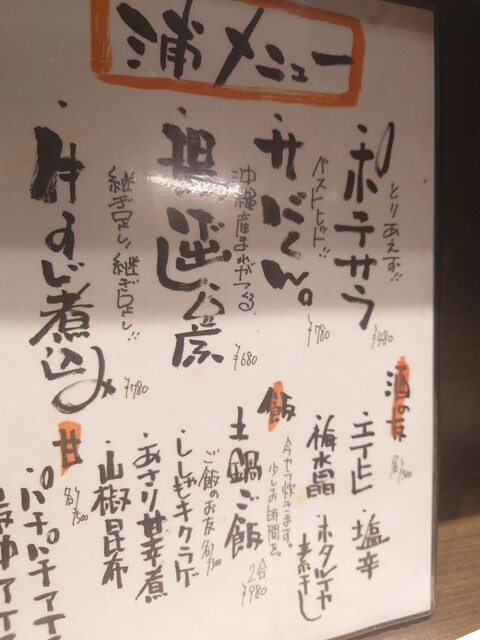 浦メニュー
とりあえず!!
・ポテサラ ¥480
ベストヒット!!
・サバくん。 ¥780
沖縄産まれがつくる
・揚出し豆腐 ¥680
継ぎ足し!継ぎ足し!!
・牛すじ煮込み ¥780
酒の友
・エイヒレ ・塩辛
・梅水晶 ・ホタルイカ素干し
飯
今から炊きます。
少しお時間を。
・土鍋ご飯 2合¥980
ご飯のお友 各¥300
・ししゃもキクラゲ
・あさり甘辛煮
・山椒昆布
甘 各¥500
・パチパチアイ